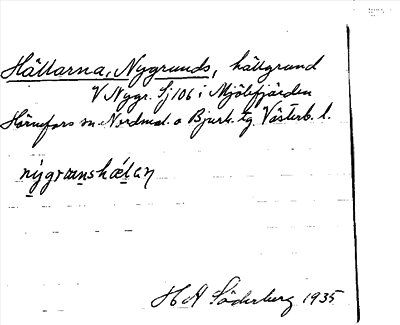 Hällarna, Nygrunds, hällgrund
V Nygr. Sj 106 i Mjölefjärden
Hörnefors sn. Nordmal. o Bjurh. tg. Västerb. l.
nýgrœnshǽlaɳ
H A Söderberg 1935